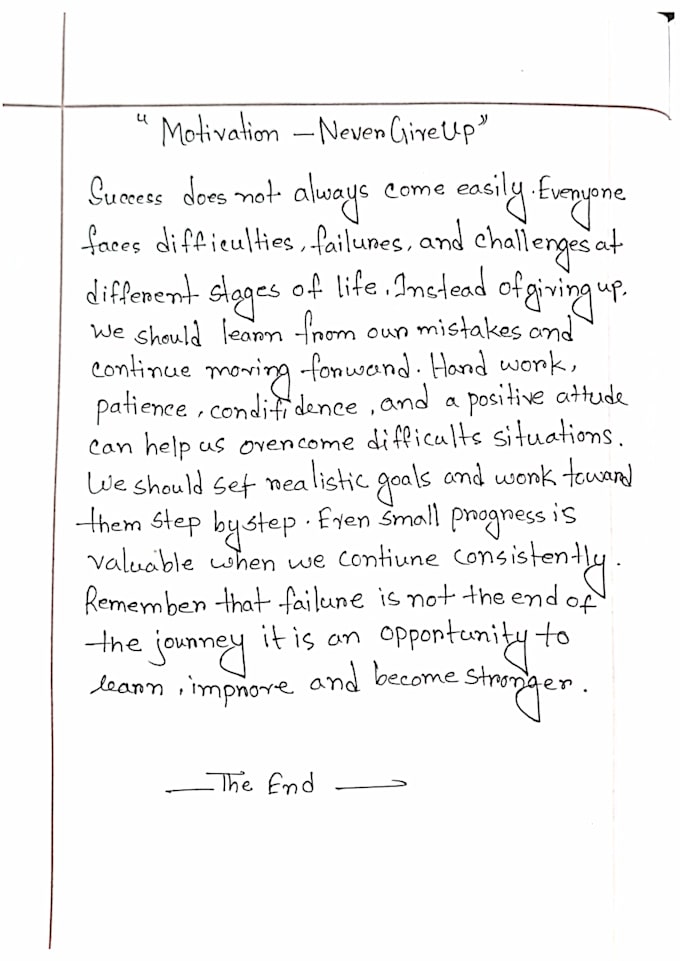 "Motivation — Never Give Up"
Success does not always come easily. Everyone
faces difficulties, failures, and challenges at
different stages of life. Instead of giving up.
we should learn from our mistakes and
continue moving forward. Hard work,
patience, condifidence, and a positive attude
can help us overcome difficults situations.
We should set realistic goals and work toward
them step by step. Even small progress is
valuable when we contiune consistently.
Remember that failure is not the end of
the journey it is an opportunity to
learn, improve and become stronger.
— The End —